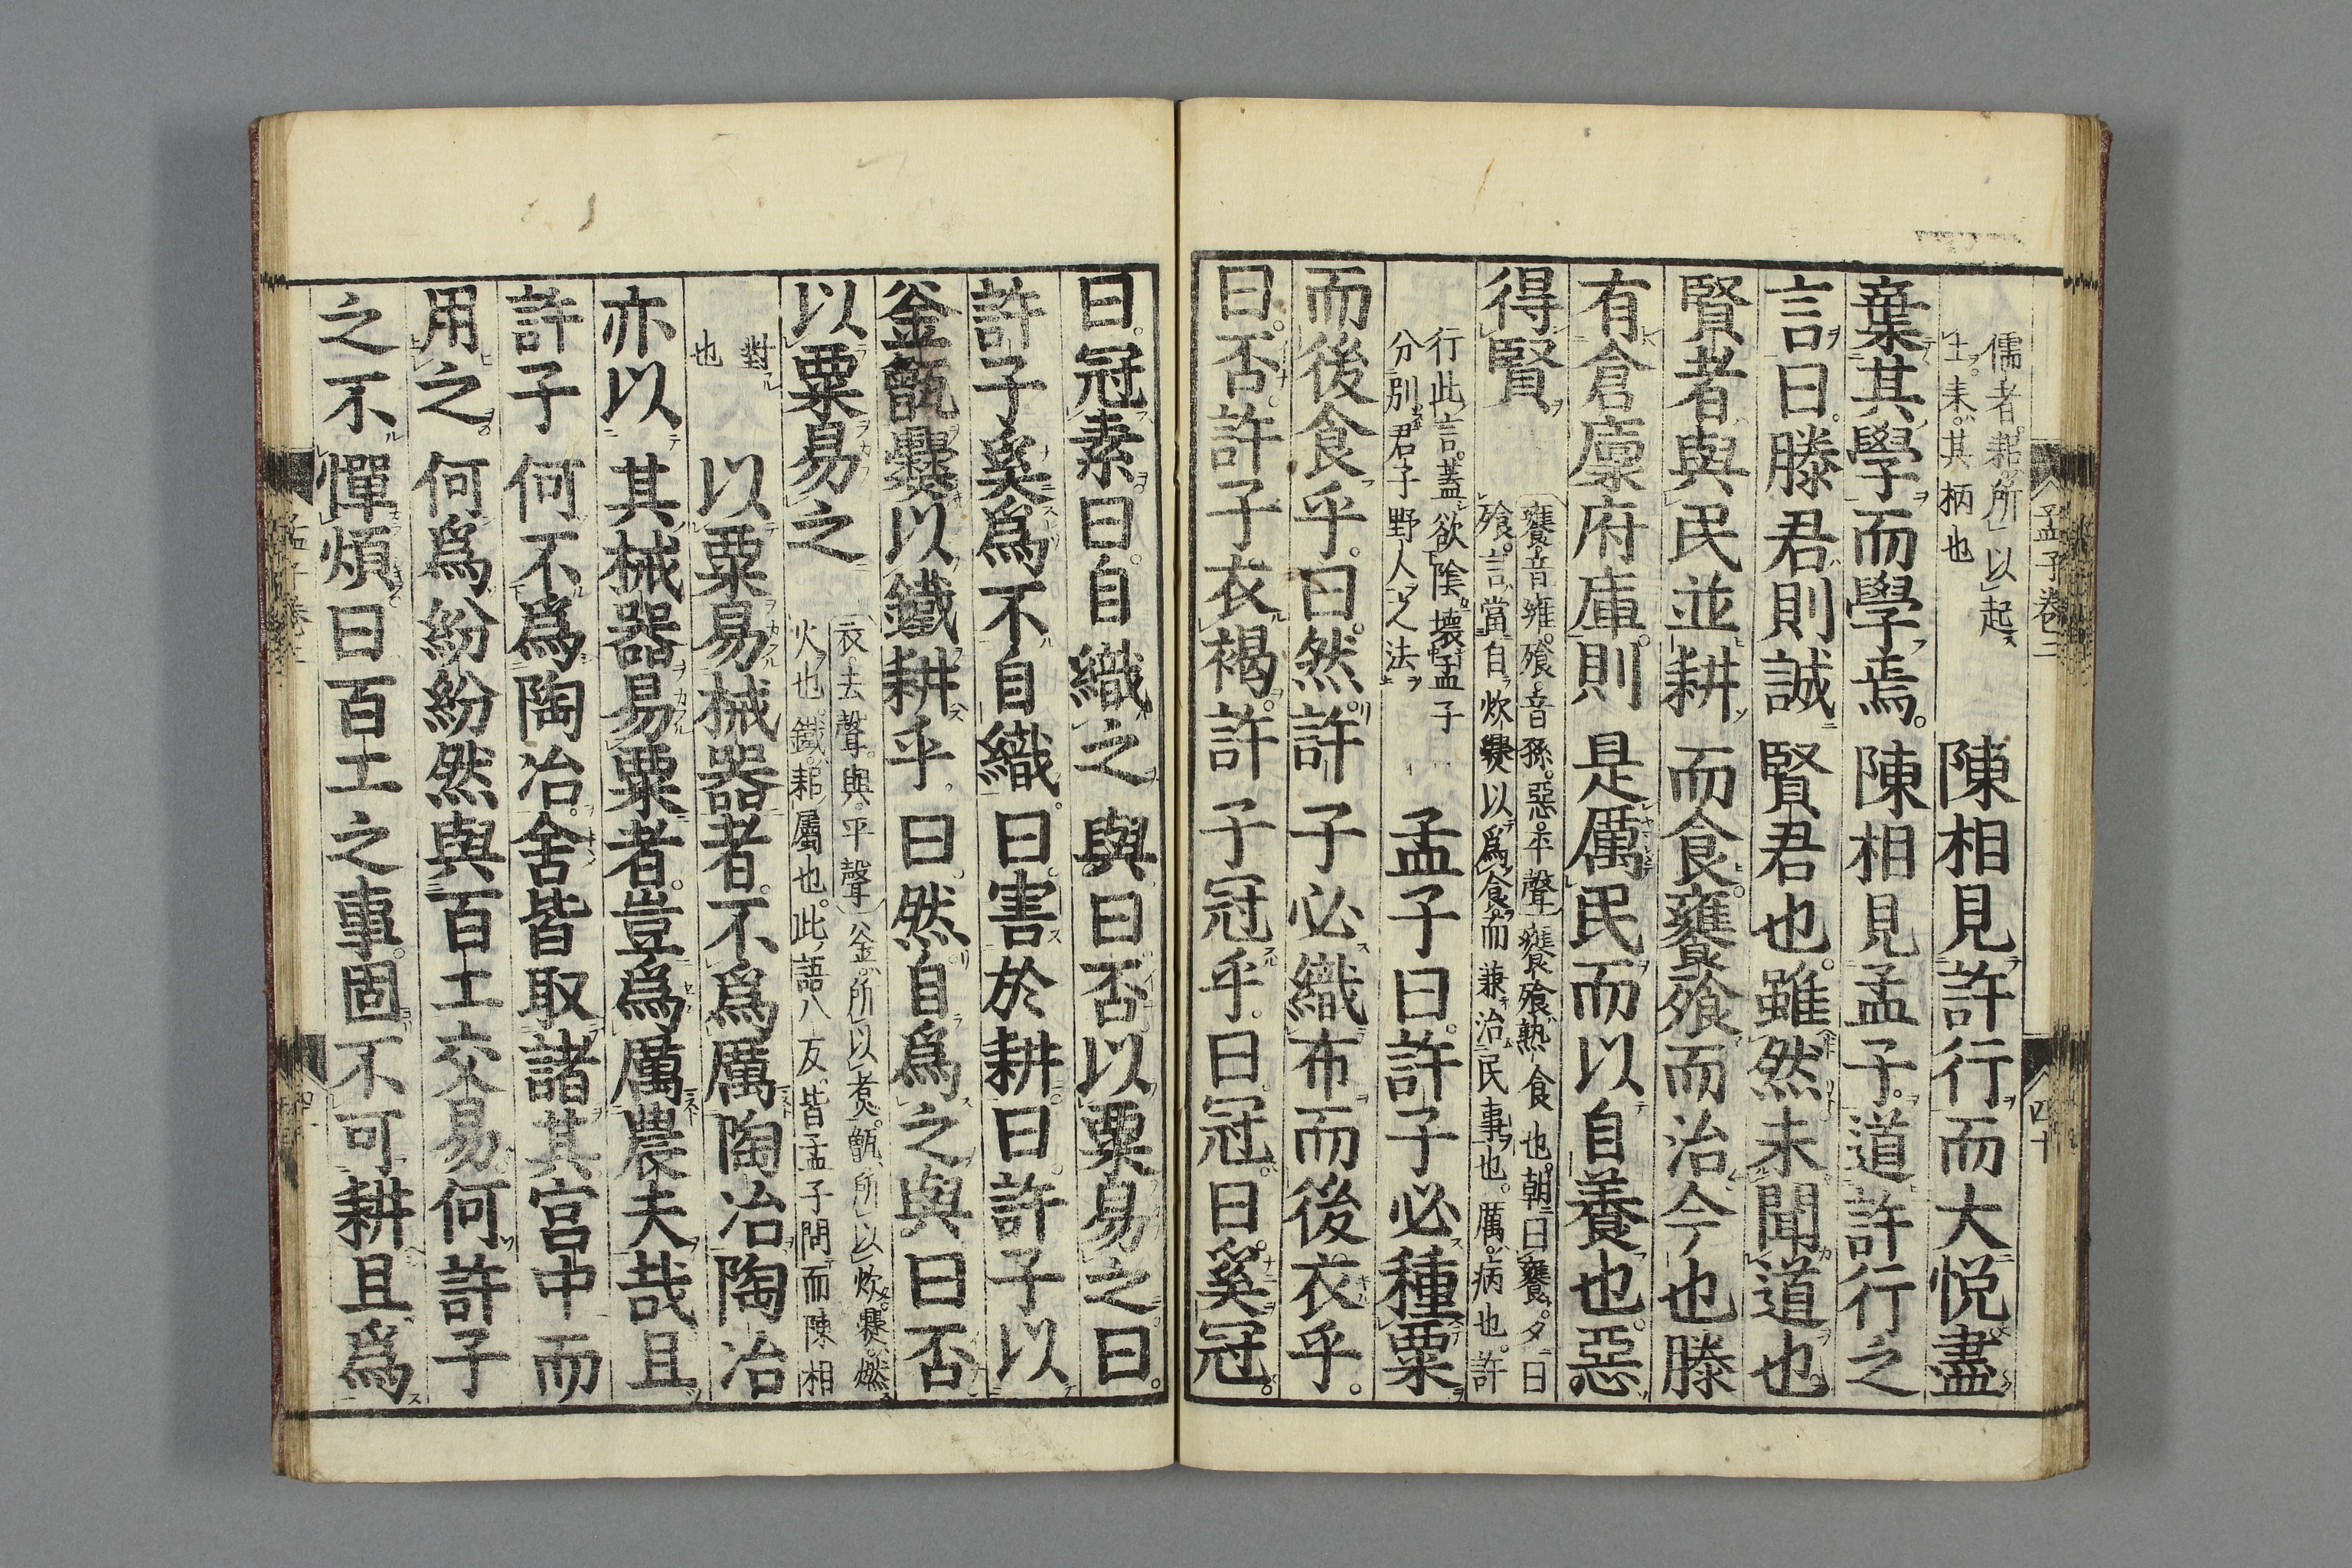 儒者耜所以起
土耒其柄也
陳相見許行而大悦盡
棄其學而學焉。陳相見孟子。道許行之
言曰。滕君則誠賢君也。雖然未聞道也。
賢者與民並耕而食饔飱而治今也滕
有倉廩府庫。則是厲民而以自養也。惡
得賢
饔音雍。飱音孫。惡平聲饔飱熟食也。朝曰饔。夕曰
飱。言當自炊爨以爲食而兼治民事也。厲。病也。許
行此言。蓋欲陰壞孟子
分別君子野人之法
孟子曰。許子必種粟
而後食乎。曰。然。許子必織布而後衣乎。
曰。否。許子衣褐。許子冠乎。曰。冠。曰。奚冠。
曰。冠素。曰。自織之與曰。否。以粟易之曰。
許子奚爲不自織。曰。害於耕。曰。許子以
釜甑爨以鐵耕乎。曰。然。自爲之與曰否
以粟易之
衣去聲。與。平聲釜。所以煮。甑。所以炊。爨。燃
火也。鐵。耜屬也。此語八反。皆孟子問而陳相
對
也
以粟易械器者。不爲厲陶冶陶冶
亦以其械器易粟者。豈爲厲農夫哉且
許子何不爲陶冶。舍皆取諸其宮中而
用之。何爲紛紛然與百工交易何許子
之不憚煩。曰百工之事。固不可耕且爲
孟子卷三
四十